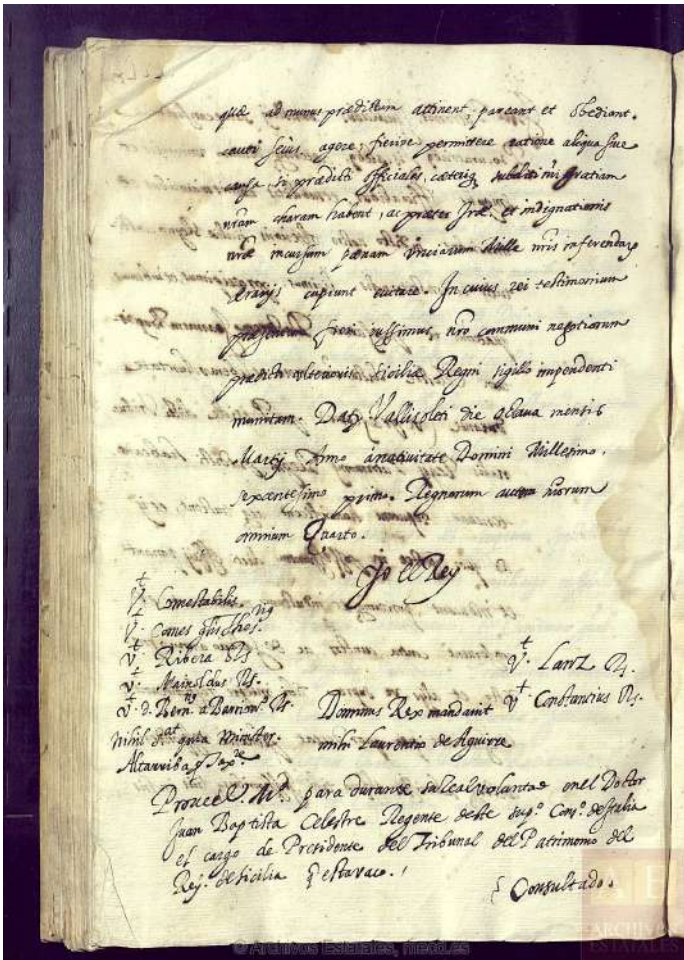 quæ ad munus prædictum attinent, pareant et obediant.
agere, fierive permittere ratione aliqua sive
causa, si prædicti officiales, cæteriq subditi nri gratiam
nram charam habent, ac præter Iræ, et indignationis
nræ incursum pœnam unciarum Mille nris inferendar
erarijs cupiunt evitare. In cuius rei testimonium
præsentem fieri iussimus, nro communi negotiorum
prædicti ulterioris Siciliæ Regni sigillo impendenti
munitam. Dat Vallisoleti die octava mensis
Martij Anno ànativitate Domini Millesimo.
sexcentesimo primo. Regnorum autem nrorum
omnium Quarto.
Yo el Rey
Vt Comestabilis.
Vt Comes
Vt Ribera Rs
Vt Mainoldus Rs.
Vt d. Bern. a Barrion. Rs.
Vt Lanz Rs.
Vt Constantius Rs.
Nihil quia Minister.
Altarriba
Dominus Rex mandavit
mihi Laurentio de Aguirre
Provee V. Md para durante su Real voluntad en el Doctor
Juan Baptista Celestre Regente deste sup.o Cons.o de Italia
el cargo de Presidente del Tribunal del Patrimonio del
Rey.o de Sicilia q esta vaco.
Consultado.
© Archivos Estatales, mecd.es
AE
ARCHIVOS
ESTATALES